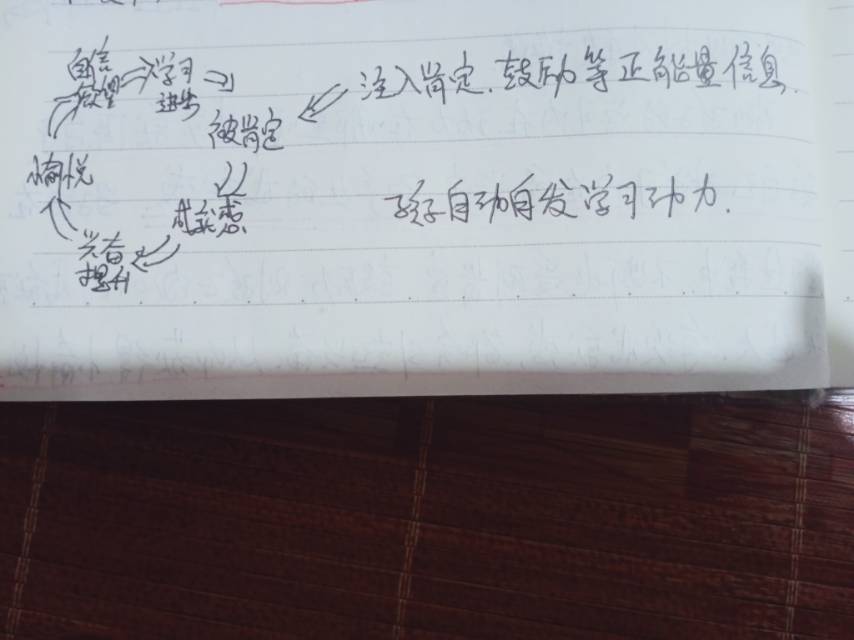 自信
欲望
学习
进步
被肯定
成就感
兴奋
提升
愉悦
注入肯定、鼓励等正能量信息.
孩子自动自发学习动力.